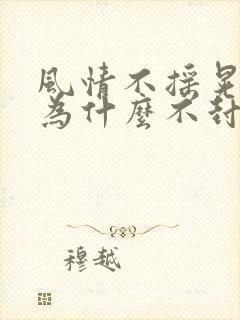 風情不摇晃
為什麼不封
穆越